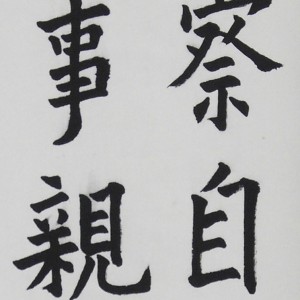 察自
事親